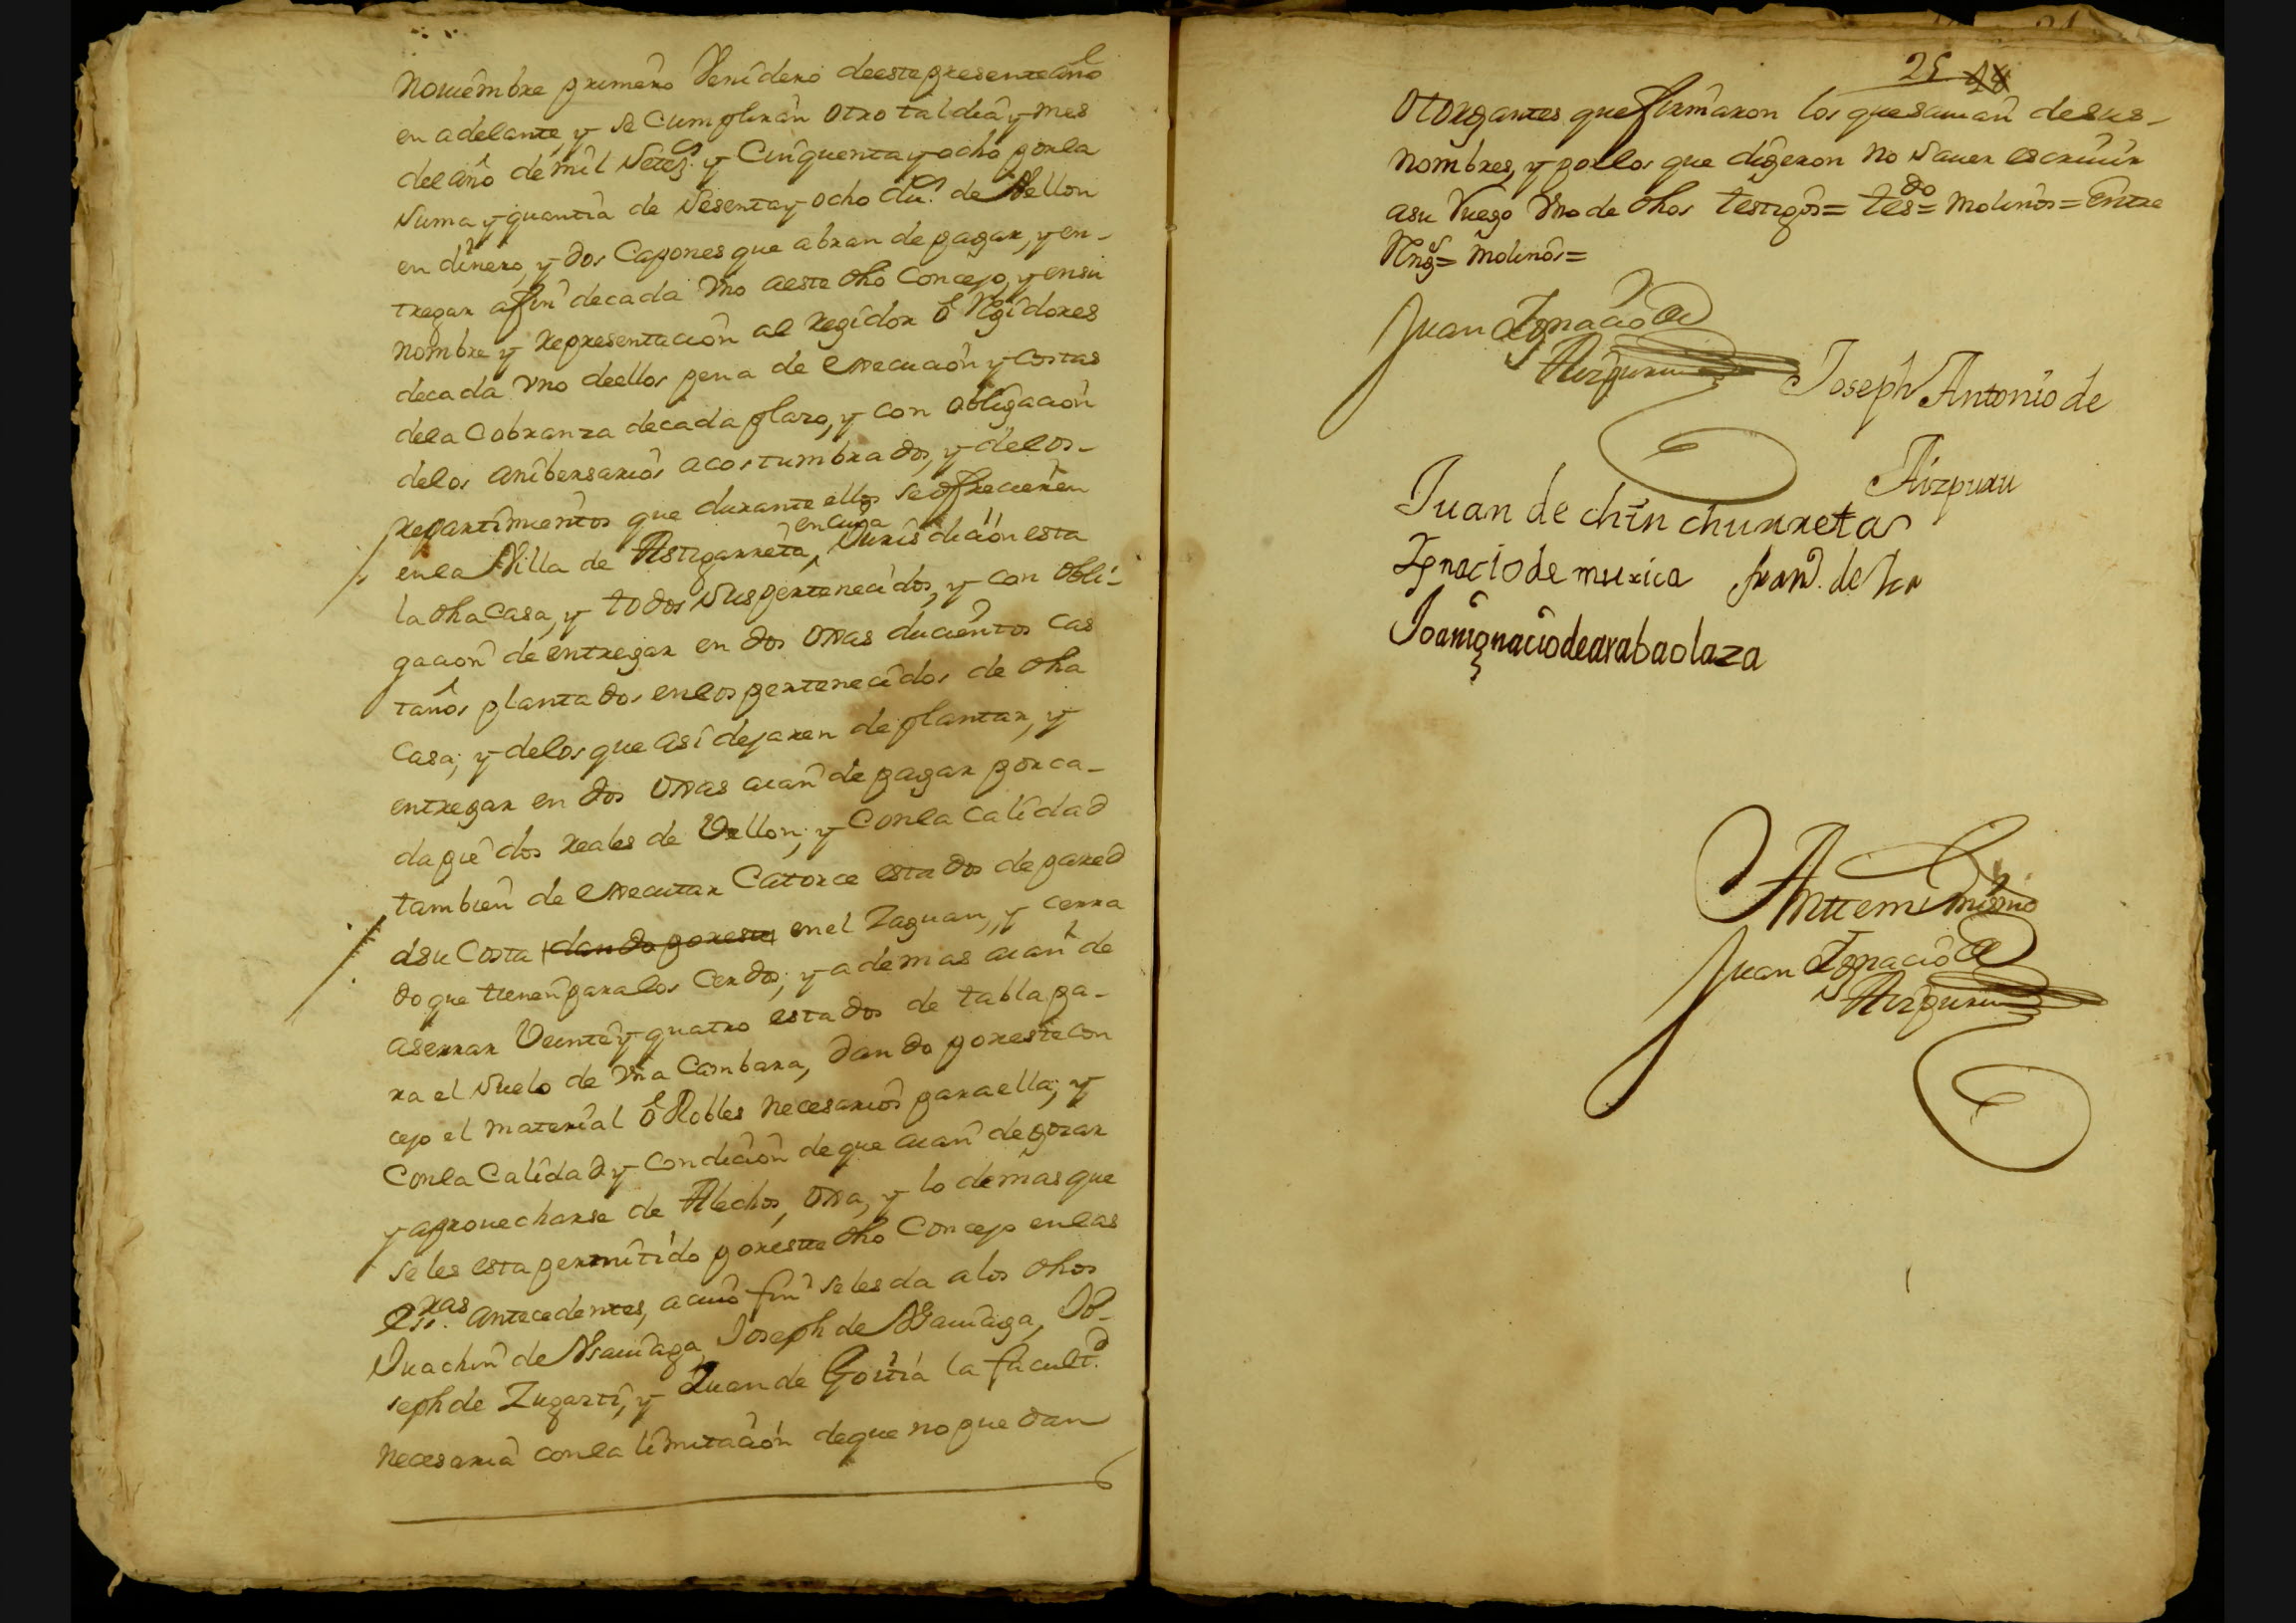 Nouiembre primero Venidero deeste presente año
en adelante, y se Cumplirán otro tal dia y mes
del año de mil Setez.os y Cinquenta y ocho por la
Suma y quantia de Sesenta y ocho du.s de Vellon
en dinero, y dos Capones que abran de pagar, y en-
tregar a fin de cada Vno a este dho Concejo, y en su
nombre y representacion al regidor ó Regidores
de cada vno de ellos pena de execucion y costas
de la Cobranza de cada plazo, y con obligacion
de los anibersarios acostumbrados, y de los-
repartimientos que durante ellos se ofrecieren
en cuia
en la Villa de Astigarreta, Jurisdicion esta
la dha casa, y todos sus pertenecidos, y con obli-
gacion de entregar en dos oxas ducientos cas
taños plantados en los pertenecidos de dha
Casa; y de los que asi dejaren de plantar, y
entregar en dos oxas aian de pagar por ca-
da pie dos reales de Vellon; y Con la calidad
tambien de executar Catorce estados de pared
a su Costa dando por esta en el Zaguan, y cerra
do que tienen para los Cerdos; y ademas aian de
aserrar Veinte y quatro estados de tabla pa-
ra el suelo de vna Cambara, dando por este con
cejo el material ó Robles necesarios para ella; y
Con la Calidad y Condicion de que aian de gozar
y aprouecharse de Alechos, oxa, y lo demas que
se les esta permitido por este dho Concejo en las
es.ras antecedentes, a cuio fin se les da a los dhos
Juachin de Vsauiaga, Joseph de Vsauiaga, Jo-
seph de Zugasti, y Juan de Goitia la facult.d
necesaria con la limitacion de que no puedan
25 28
Otorgantes que firmaron los que sauian de sus-
nombres, y por los que digeron no Sauer escriuir
a su ruego Vno de dhos testigos= tes.do= molinos= Entre
Rng.s= molinos=
Juan Ignacio de
Aizpuru
Joseph Antonio de
Aizpuru
Juan de chinchurreta
Ignacio de muxica fran.co de
Joanignaciodearabaolaza
Anttemi mismo
Juan Ignacio de
Aizpuru